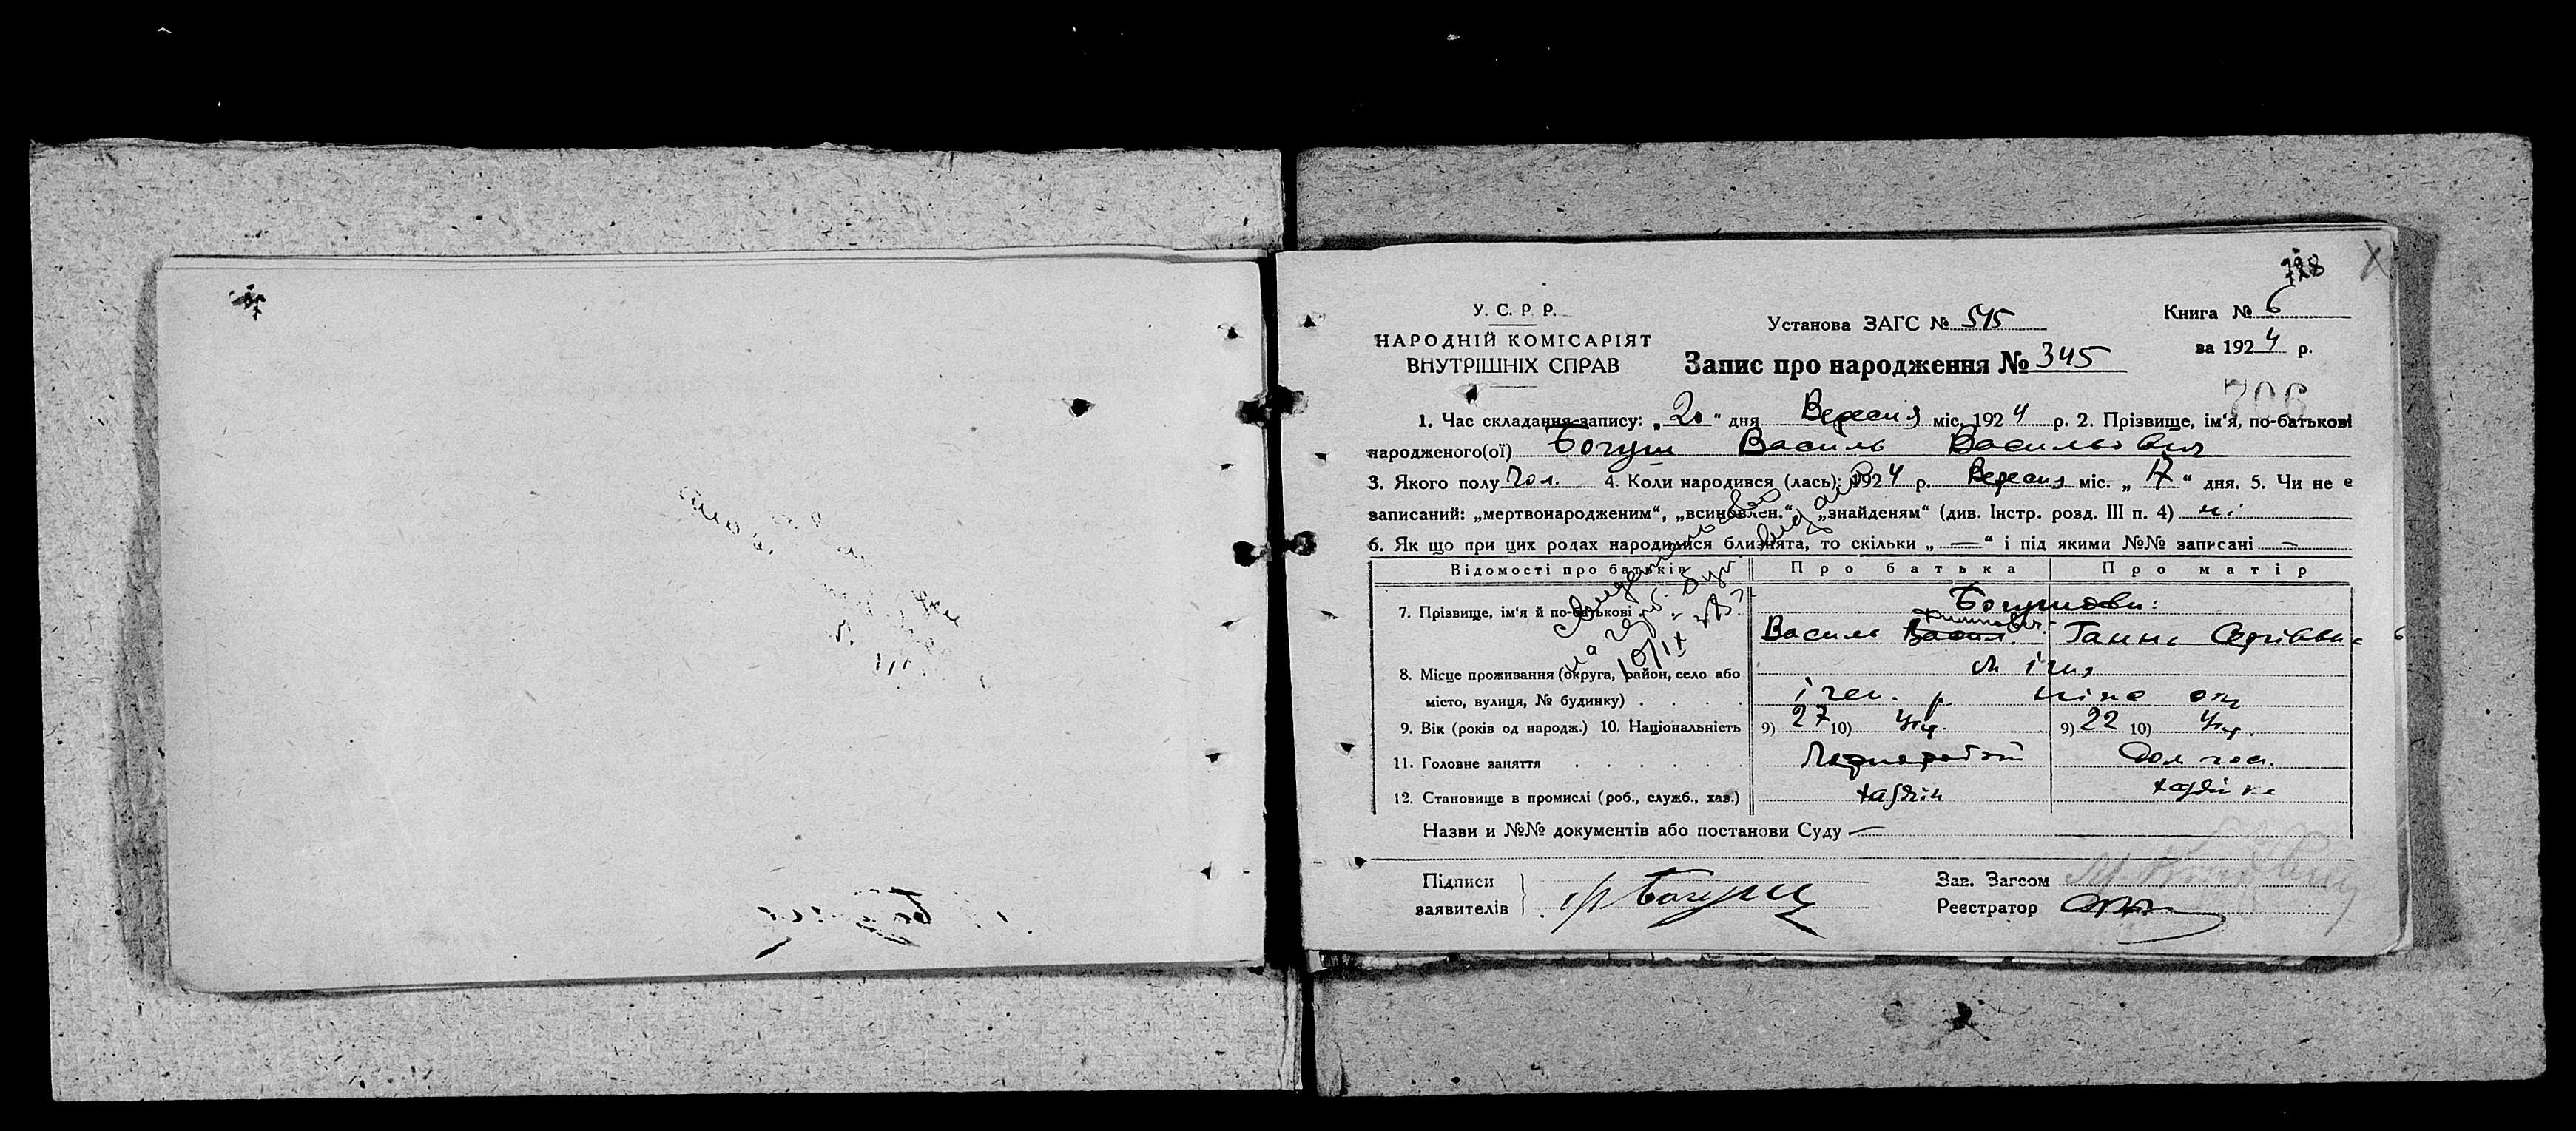 728
У. С. Р. Р.
НАРОДНІЙ КОМІСАРІЯТ
ВНУТРІШНІХ СПРАВ
Установа ЗАГС № 545
Запис про народження № 345
Книга № 6
за 1924 р.
706
1. Час складання запису: „20“ дня Вересня міс. 1924 р. 2. Прізвище, ім‘я, по-батькові
народженого(ої) Богуш Василь Васильович
3. Якого полу чол. 4. Коли народився (лась): 1924 р. Вересня міс. „17“ дня. 5. Чи не є
записаний: „мертвонародженим“, „всиновлен.“, „знайденям“ (див. Інстр. розд. III п. 4) ні
6. Як що при цих родах народилися близнята, то скільки „—“ і під якими №№ записані —
Відомості про батьків Про батька Про матір
7. Прізвище, ім‘я й по-батькові Богушови:
Василь Ганна Сергіївна
8. Місце проживання (округа, район, село або
місто, вулиця, № будинку) . . . . ічен. р. ніже окр
9. Вік (років од народж.) 10. Національність 9) 27 10) Укр. 9) 22 10) Укр.
11. Головне заняття . . . . . . Дом. гос.
12. Становище в промислі (роб., служб., хаз.) хазяїн хазяйка
Назви и №№ документів або постанови Суду —
Підписи
заявителів Богуш
Зав. Загсом
Реєстратор
10/IX